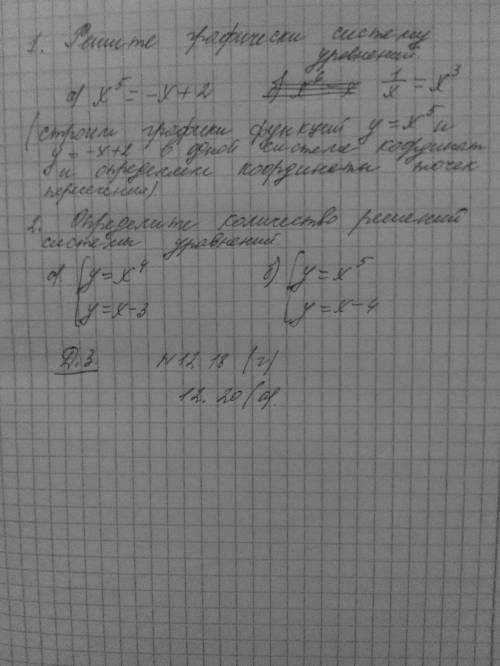 1. Решите графически систему
уравнений.
а) x⁵ = -x+2 б) 1/x = x³
(строим графики функций y=x⁵ и
y = -x+2 в одной системе координат
и определяем координаты точек
пересечения).
2. Определите количество решений
системы уравнений.
а) { y=x⁴ б) { y=x⁵
y=x-3 y=x-4
Д.З. №12.18 (г)
12.20 (а)